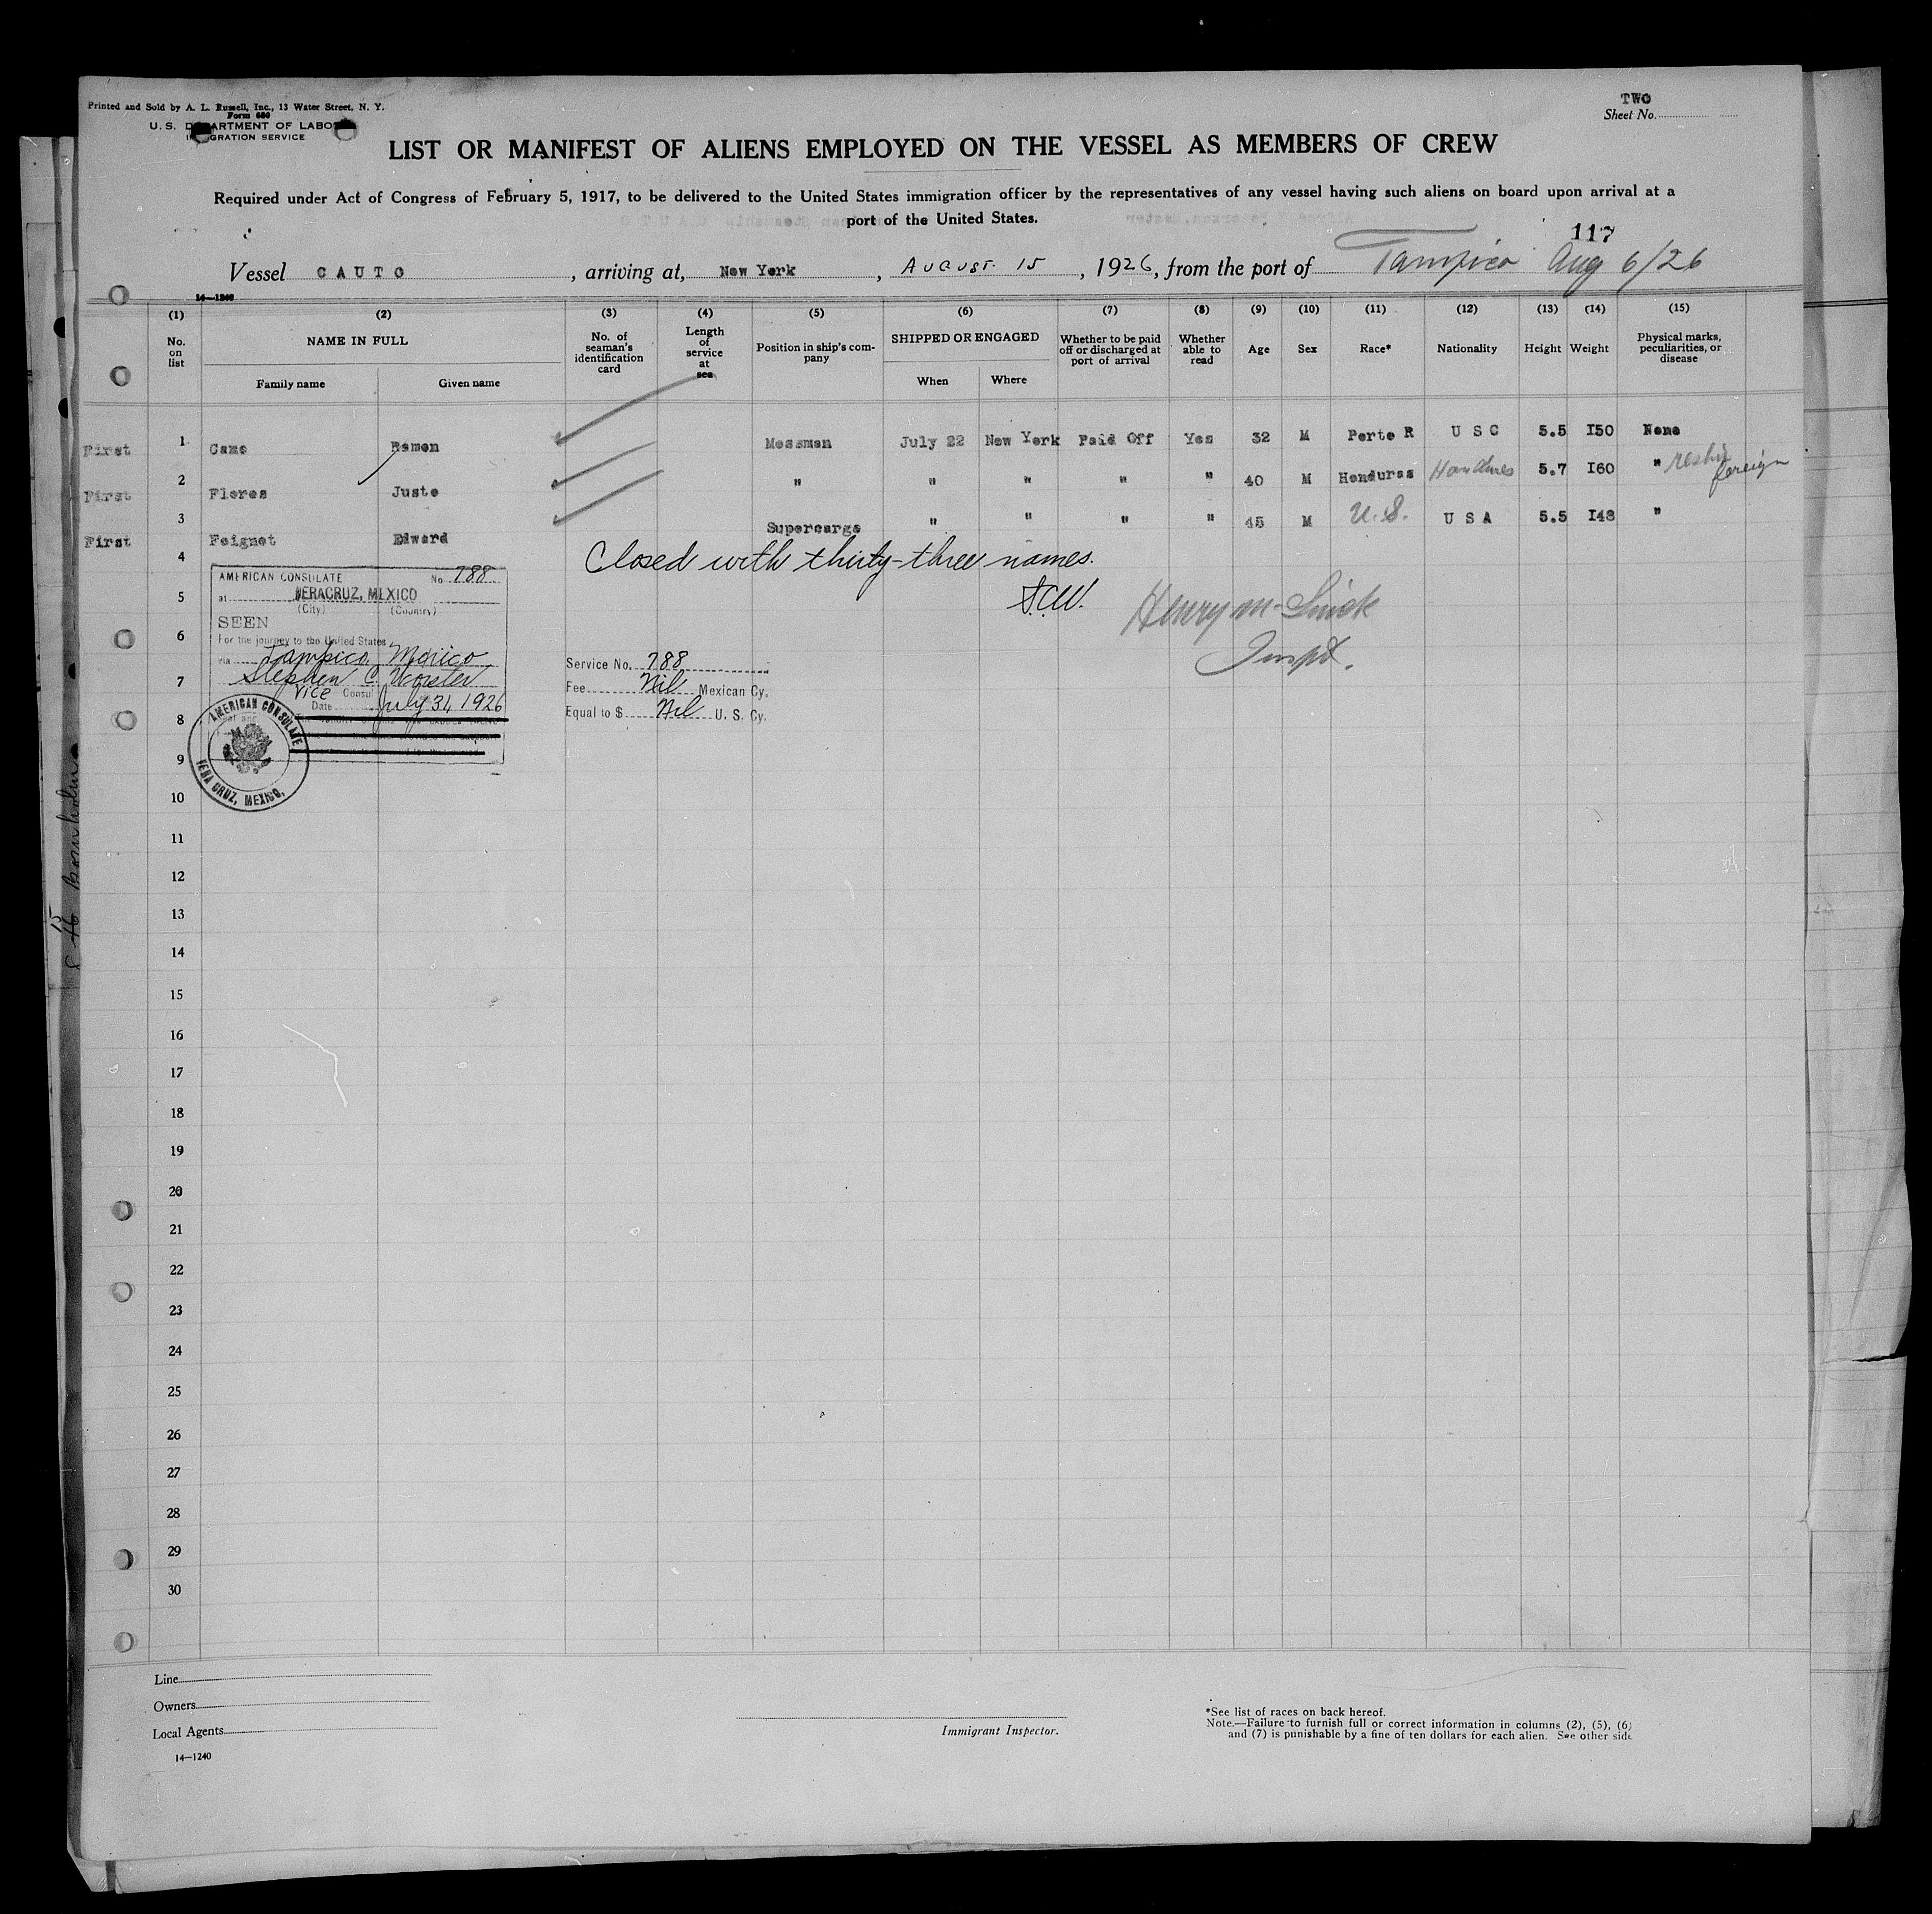 Printed and Sold by A. L. Russell, Inc., 13 Water Street, N. Y.
Form 680
U. S. DEPARTMENT OF LABOR
IMMIGRATION SERVICE
TWO
Sheet No.
LIST OR MANIFEST OF ALIENS EMPLOYED ON THE VESSEL AS MEMBERS OF CREW
Required under Act of Congress of February 5, 1917, to be delivered to the United States immigration officer by the representatives of any vessel having such aliens on board upon arrival at a
port of the United States.
117
Vessel CAUTO, arriving at, New York, AUGUST 15, 1926, from the port of Tampico Aug 6/26
14—1240
(1) (2) (3) (4) (5) (6) (7) (8) (9) (10) (11) (12) (13) (14) (15)
No. on list
NAME IN FULL
Family name
Given name
No. of seaman's identification card
Length of service at sea
Position in ship's company
SHIPPED OR ENGAGED
When
Where
Whether to be paid off or discharged at port of arrival
Whether able to read
Age
Sex
Race*
Nationality
Height
Weight
Physical marks, peculiarities, or disease
First 1 Camo Ramon Messman July 22 New York Paid Off Yes 32 M Porto R U S C 5.5 150 None
First 2 Flores Justo " " " " " 40 M Honduras Honduras 5.7 160 " foreign
First 3 Feignet Edward Supercargo " " " " 45 M U.S. U S A 5.5 148 "
4
Closed with thirty-three names.
AMERICAN CONSULATE No. 788
at VERACRUZ, MEXICO
(City) (Country)
5
SEEN
6
For the journey to the United States
via Tampico, Mexico
7
Stephen C. Worster
Vice Consul
Date July 31, 1926
Service No. 788
Fee Nil Mexican Cy.
Equal to $ Nil U. S. Cy.
Inspt.
8
AMERICAN CONSULATE
VERA CRUZ, MEXICO.
9
10
11
12
13
14
15
16
17
18
19
20
21
22
23
24
25
26
27
28
29
30
Line
Owners
Local Agents
14—1240
Immigrant Inspector.
*See list of races on back hereof.
Note.—Failure to furnish full or correct information in columns (2), (5), (6)
and (7) is punishable by a fine of ten dollars for each alien. See other side